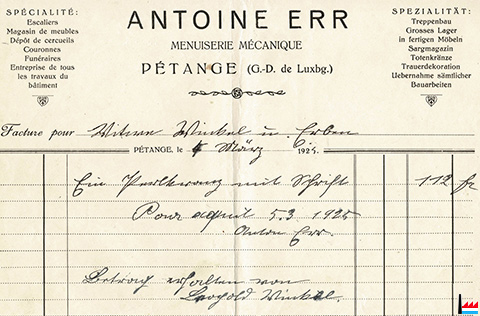 SPÉCIALITÉ:
Escaliers
Magasin de meubles
Dépôt de cercueils
Couronnes
Funéraires
Entreprise de tous
les travaux du
bâtiment
ANTOINE ERR
MENUISERIE MÉCANIQUE
PÉTANGE (G.-D. de Luxbg.)
SPEZIALITÄT:
Treppenbau
Grosses Lager
in fertigen Möbeln
Sargmagazin
Totenkränze
Trauerdekoration
Uebernahme sämtlicher
Bauarbeiten
Facture pour Witwe Winkel u. Erben
PÉTANGE, le 4 März 1925.
Ein Perlkranz mit Schrift 112 fr
Pour acquit 5.3.1925
Anton Err.
Betrag erhalten von
Leopold Winkel.